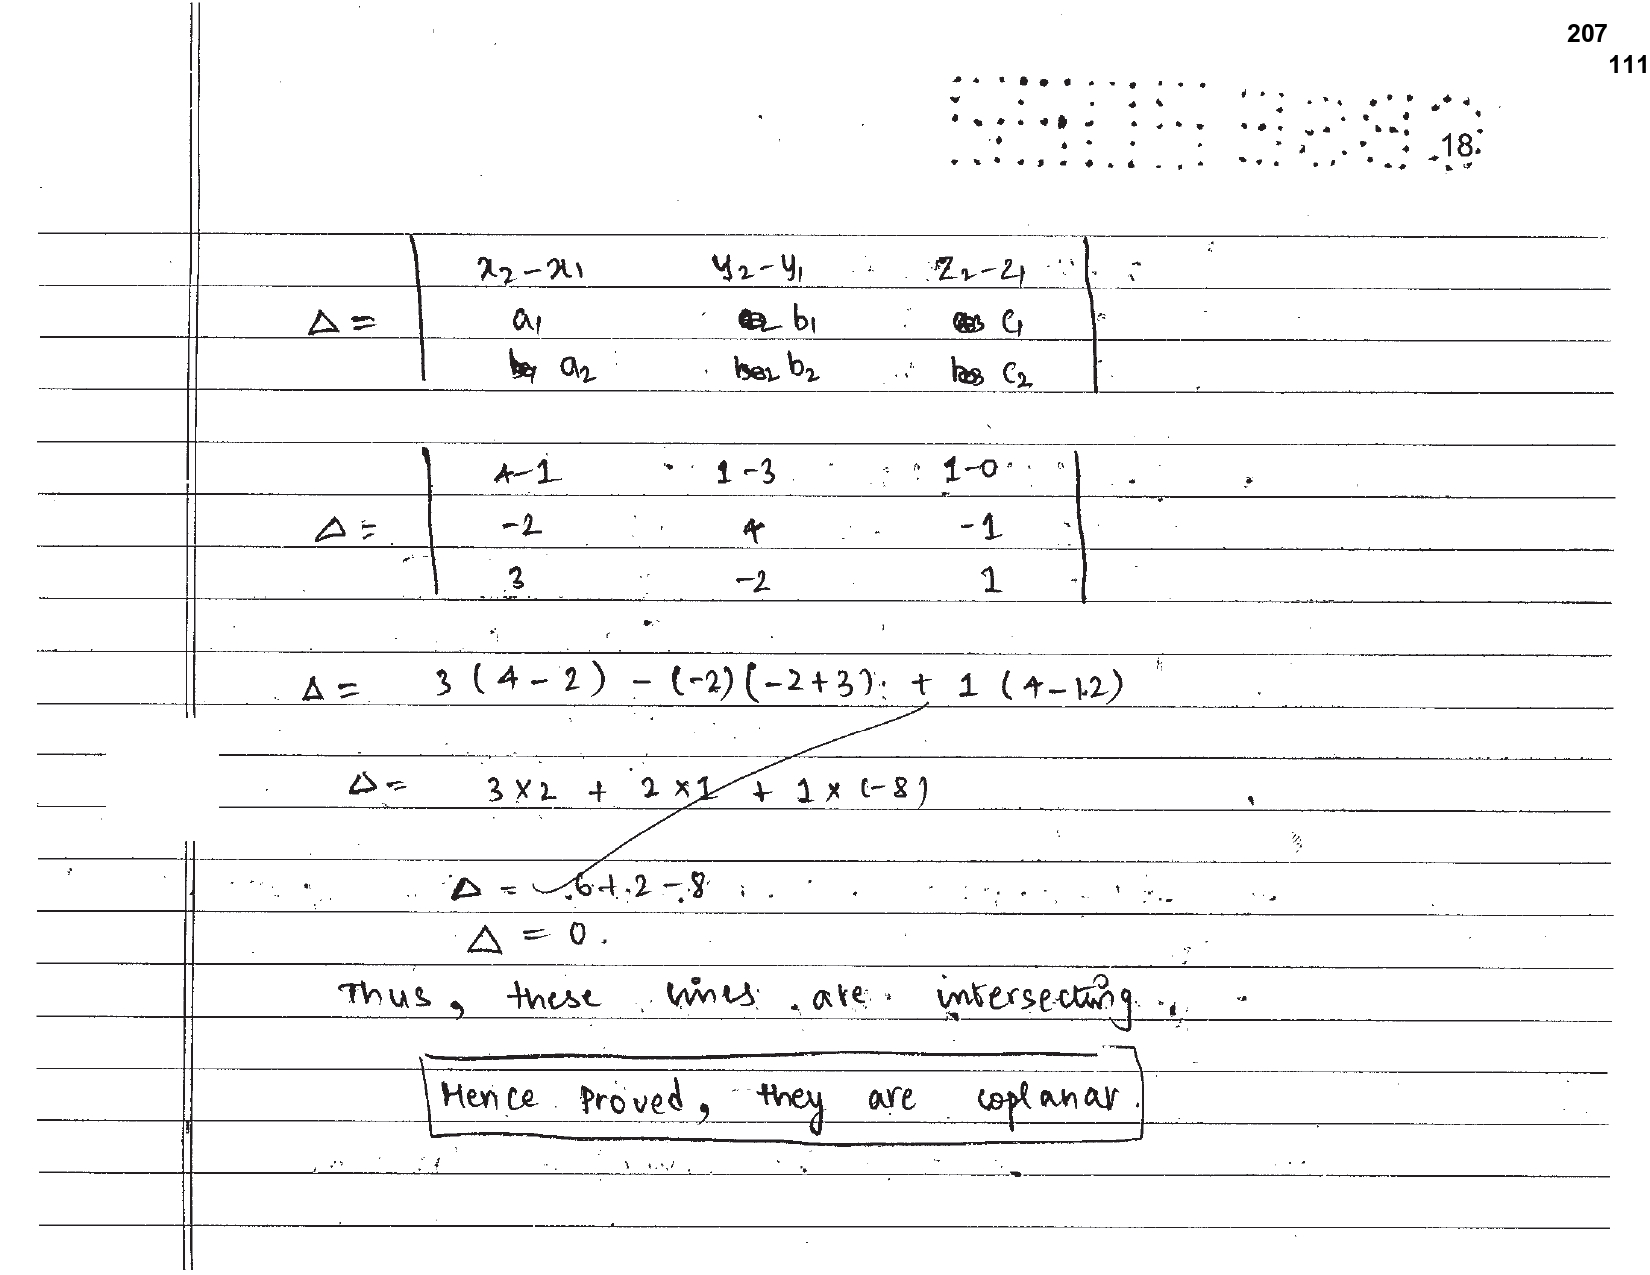 207
111
18
x₂-x₁ y₂-y₁ z₂-z₁
Δ = a₁ b₁ c₁
a₂ b₂ c₂
4-1 1-3 1-0
Δ = -2 4 -1
3 -2 1
Δ = 3 (4-2) - (-2)(-2+3) + 1 (4-12)
Δ = 3×2 + 2×1 + 1×(-8)
Δ = 6+2-8
Δ = 0.
Thus, these lines are intersecting.
Hence Proved, they are coplanar.